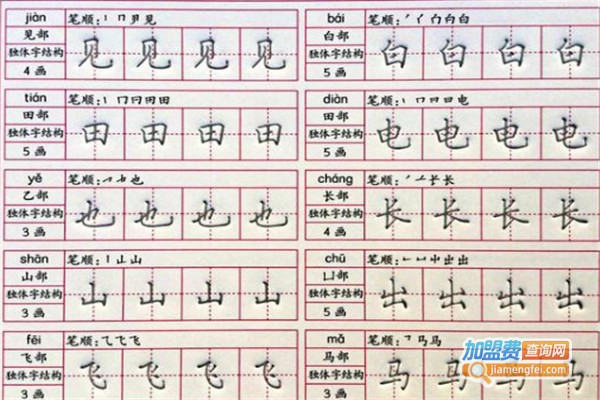 jiàn 笔顺：丨 冂 贝 见
见部
独体字结构
4 画
见 见 见 见
bái 笔顺：丿 亻 白 白
白部
独体字结构
5 画
白 白 白 白
tián 笔顺：丨 冂 冂 田 田
田部
独体字结构
5 画
田 田 田 田
diàn 笔顺：丨 冂 日 日 电
田部
独体字结构
5 画
电 电 电 电
yě 笔顺：也
乙部
独体字结构
3 画
也 也 也 也
cháng 笔顺：长 长
长部
独体字结构
4 画
长 长 长 长
shān 笔顺：丨 山 山
山部
独体字结构
3 画
山 山 山 山
chū 笔顺：屮 出 出
凵部
独体字结构
5 画
出 出 出 出
fēi 笔顺：乁 飞 飞
飞部
独体字结构
3 画
飞 飞 飞 飞
mǎ 笔顺：马 马
马部
独体字结构
3 画
马 马 马 马
加盟费查询网
jiamengfei.com